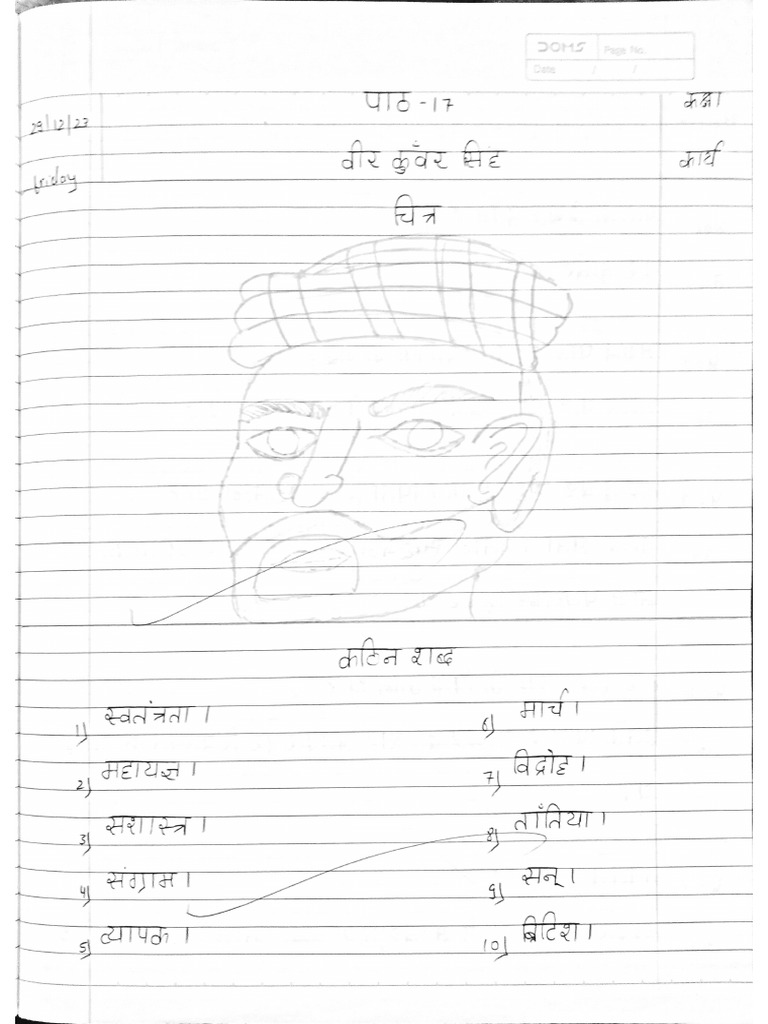 DOMS Page No.
Date / /
पाठ -17 कक्षा
29/12/23
वीर कुँवर सिंह कार्य
friday
चित्र
कठिन शब्द
1) स्वतंत्रता ।
2) महायज्ञ ।
3) सशास्त्र ।
4) संग्राम ।
5) व्यापक ।
6) मार्च ।
7) विद्रोह ।
8) ताँतिया ।
9) सन् ।
10) ब्रिटिश ।